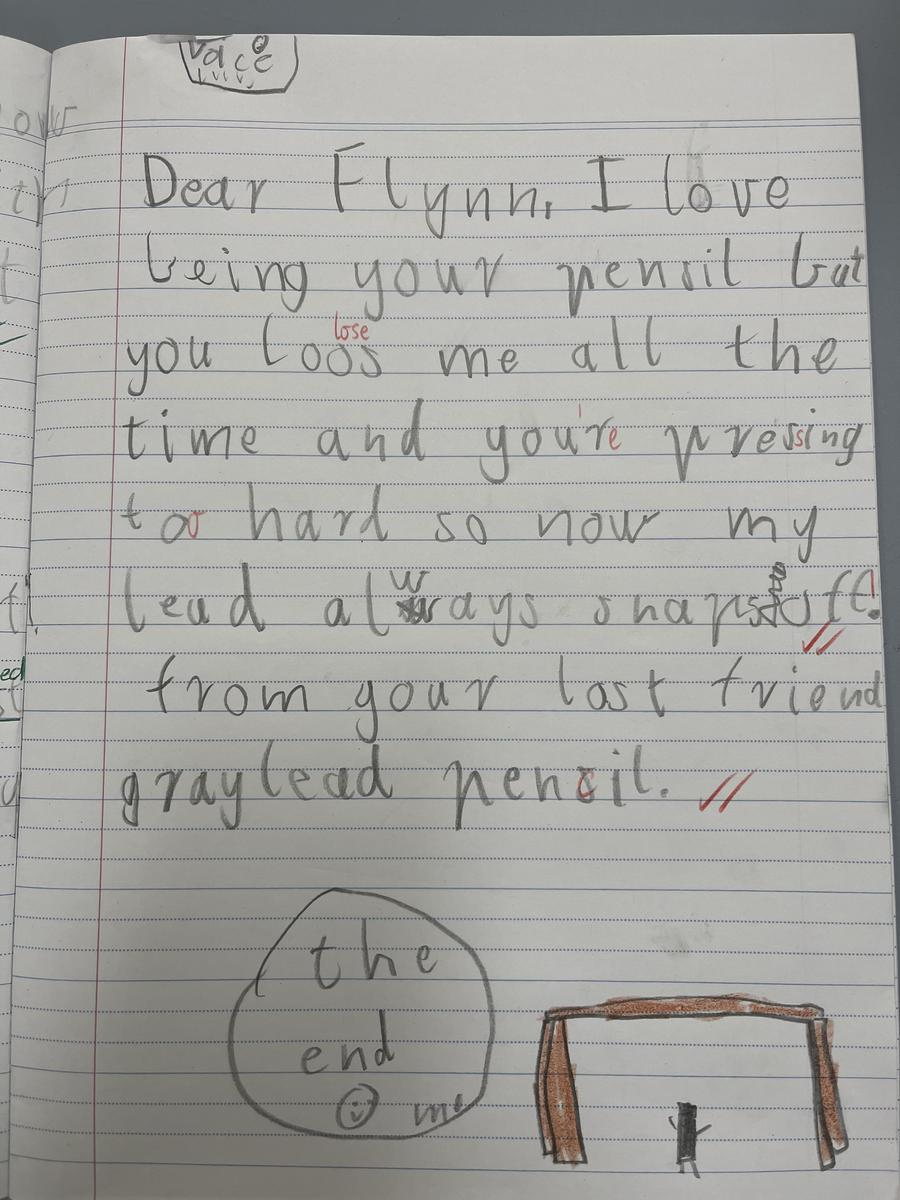 Dear Flynn, I love
being your pensil but
lose
you loos me all the
time and you're pressing
too hard so now my
lead always snaps off!
from your last friend
graylead pencil.
the
end
me
ow
t
ed